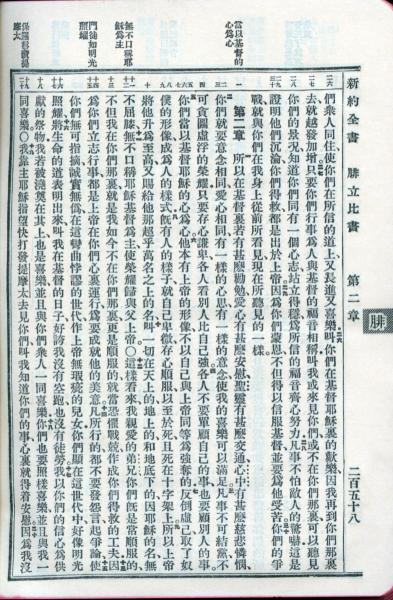 新約全書 腓立比書 第二章 二百五十八
腓
們衆人同住使你們在所信的道上又長進又喜樂叫你們在基督耶穌裏的歡樂因我再到你們那裏
去就越發加增只要你們行事爲人與基督的福音相稱叫我或來見你們或不在你們那裏可以聽見
你們的景況知道你們同有一個心志站立得穩爲所信的福音齊心努力凡事不怕敵人的驚嚇這是
證明他們沉淪你們得救都是出於上帝因爲你們蒙恩不但得以信服基督並要爲他受苦你們的爭
戰就與你們在我身上從前所看見現在所聽見的一樣
當以基督的
心爲心
第二章 所以在基督裏若有甚麼勸勉愛心有甚麼安慰聖靈有甚麼交通心中有甚麼慈悲憐憫
你們就要意念相同愛心相同有一樣的心思有一樣的意念使我的喜樂可以滿足凡事不可結黨不
可貪圖虛浮的榮耀只要存心謙卑各人看別人比自己強各人不要單顧自己的事也要顧別人的事
你們當以基督耶穌的心爲心他本有上帝的形像不以自己與上帝同等爲強奪的反倒虛己取了奴
僕的形像成爲人的樣式旣有人的樣子就自己卑微存心順服以至於死且死在十字架上所以上帝
將他升爲至高又賜給他那超乎萬名之上的名叫一切在天上的地上的和地底下的因耶穌的名無
無不口稱耶
穌爲主
不屈膝無不口稱耶穌基督爲主使榮耀歸與父上帝〇這樣看來我親愛的弟兄你們旣是常順服的
不但我在你們那裏就是我如今不在你們那裏更是順服的就當恐懼戰兢作成你們得救的工夫因
爲你們立志行事都是上帝在你們心裏運行爲要成就他的美意凡所行的都不要發怨言起爭論使
門徒如明光
照耀
你們無可指摘誠實無僞在這彎曲悖謬的世代作上帝無瑕疵的兒女你們顯在這世代中好像明光
照耀將生命的道表明出來叫我在基督的日子好誇我沒有空跑也沒有徒勞我以你們的信心爲供
獻的祭物我若被澆奠在其上也是喜樂並且與你們衆人一同喜樂你們也要照樣喜樂並且與我一
同喜樂我靠主耶穌指望快打發提摩太去見你們叫我知道你們的事心裏就得着安慰因爲我沒